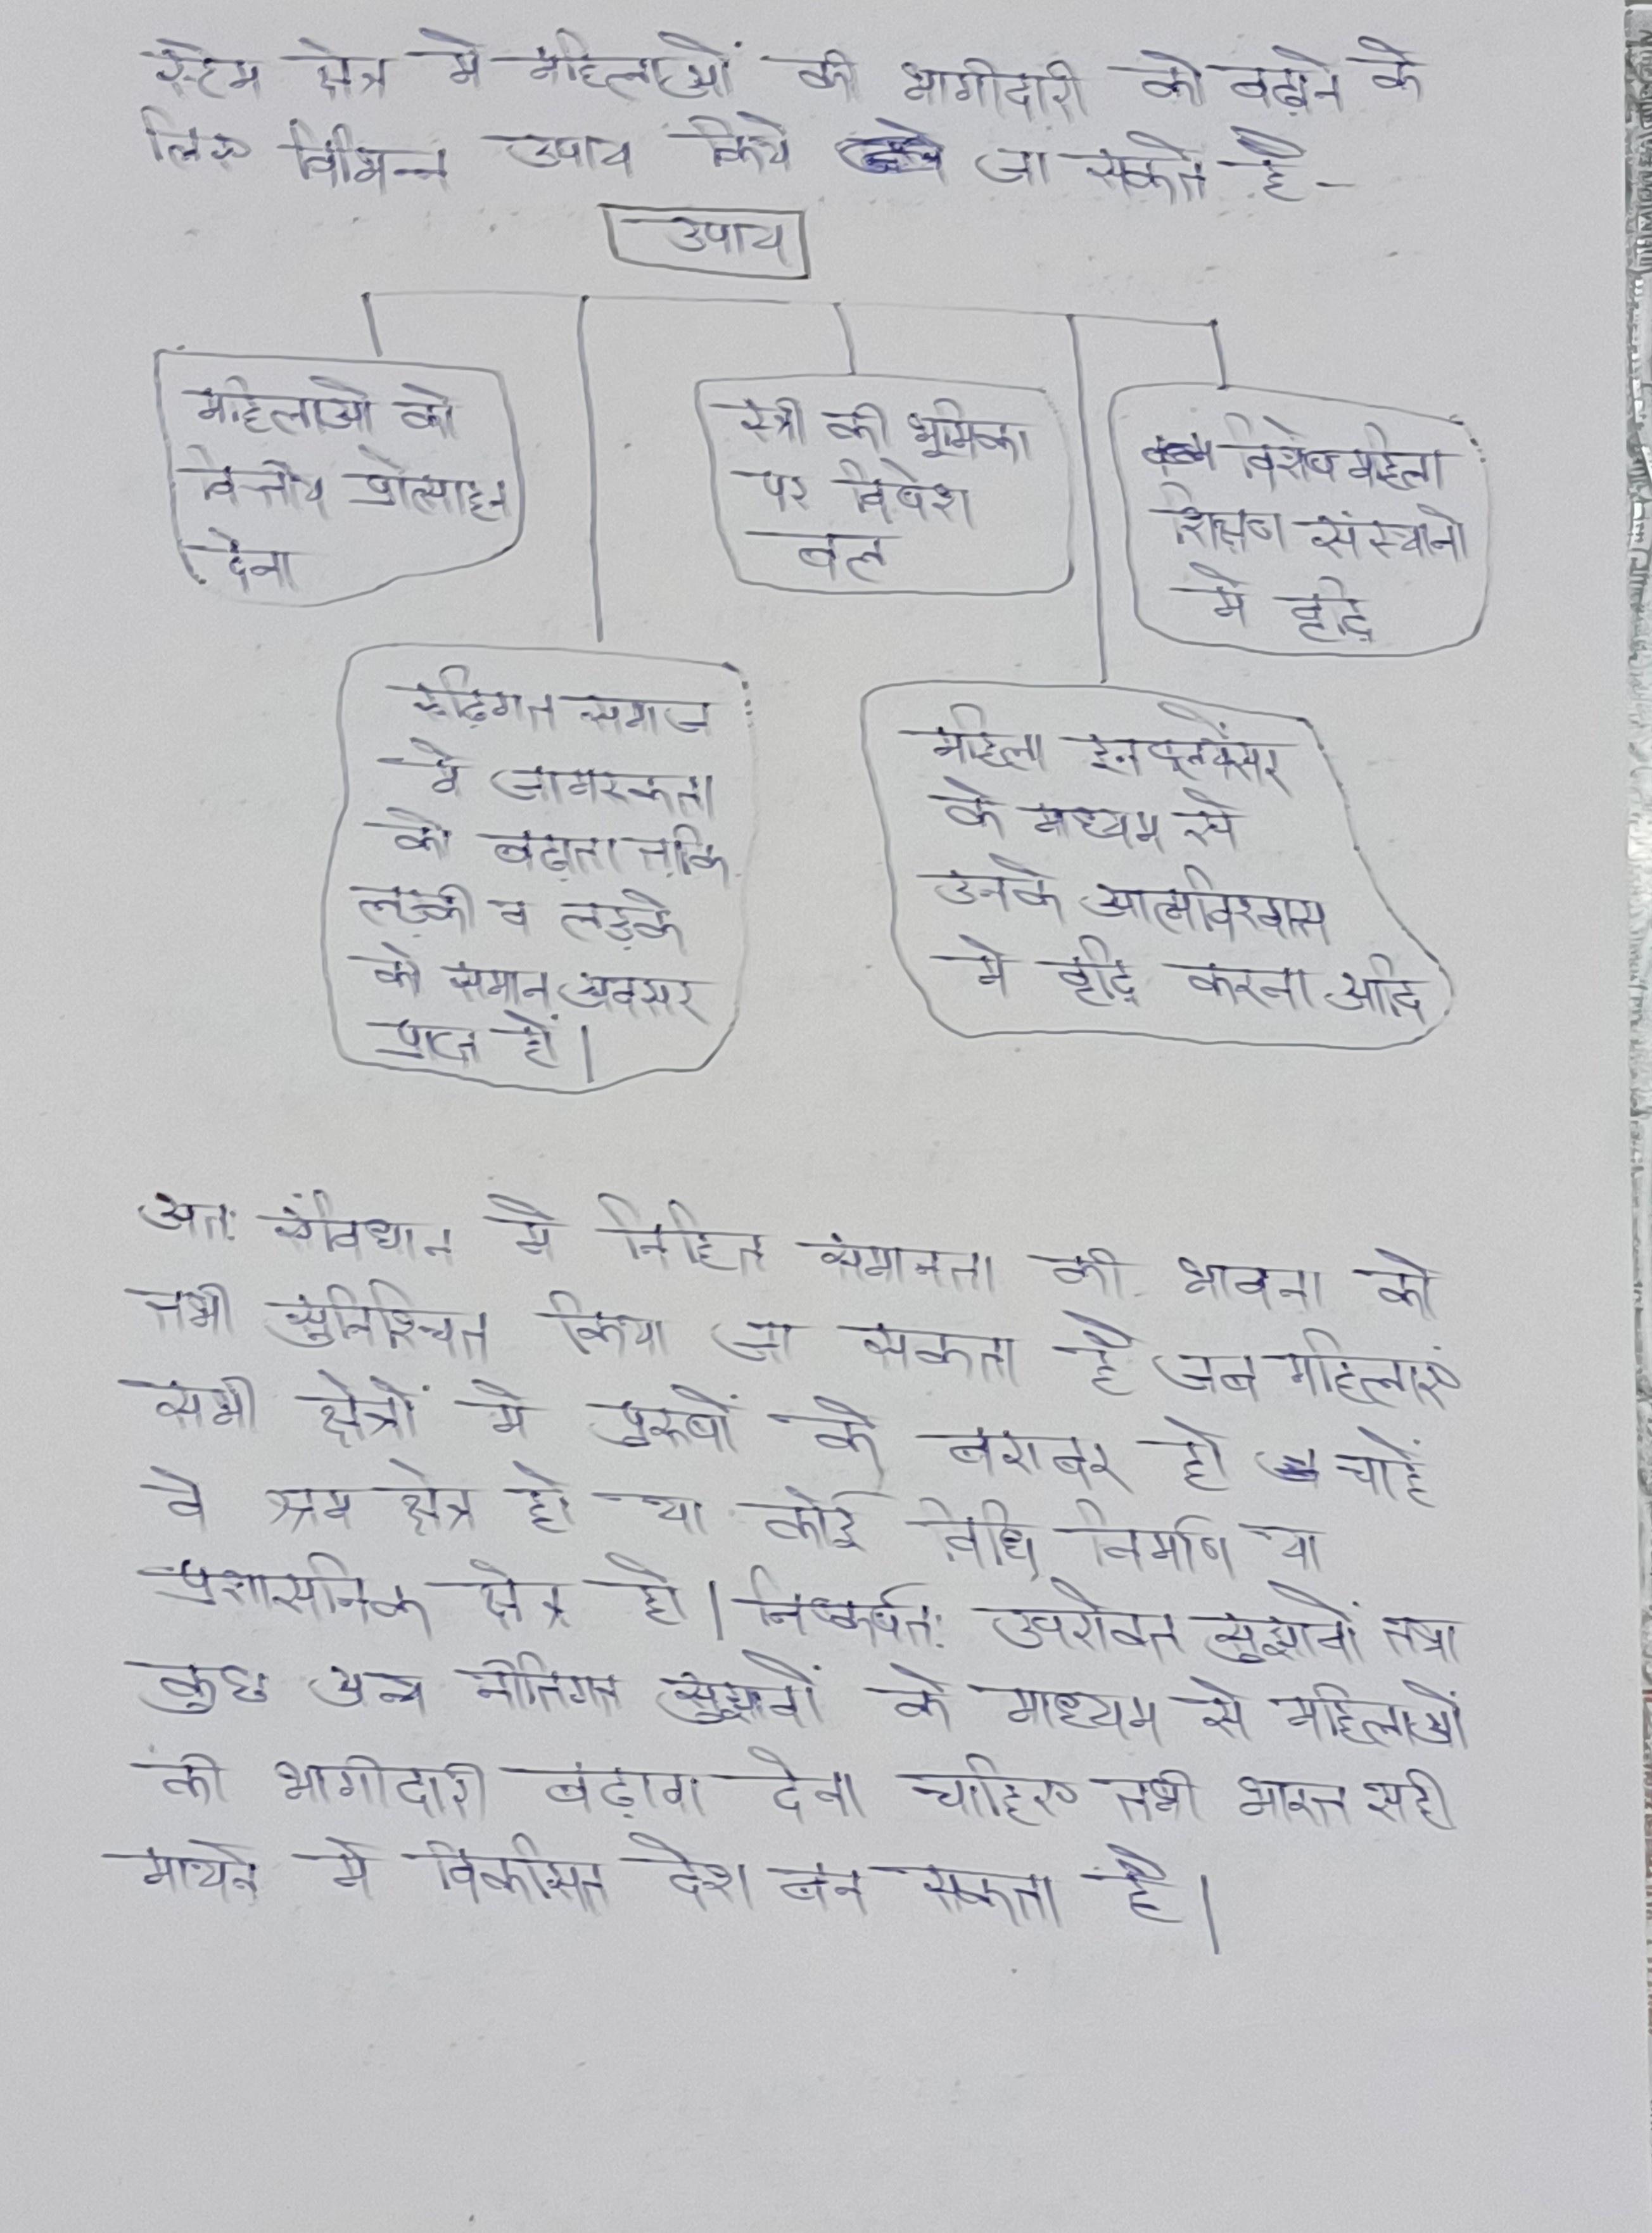 स्टेम क्षेत्र मे महिलाओं की भागीदारी को बढ़ाने के
लिए विभिन्न उपाय किये जा सकते है -
उपाय
महिलाओ को
वित्तीय प्रोत्साहन
देना
स्त्री की भूमिका
पर विषेश
बल
विशेष महिला
शिक्षण संस्थानो
मे वृद्धि
रूढ़िगत समाज
मे जागरूकता
को बढ़ाना ताकि
लड़की व लड़के
को समान अवसर
प्राप्त हो।
महिला इन्फ्लूएंसर
के माध्यम से
उनके आत्मविश्वास
मे वृद्धि करना आदि
अतः संविधान मे निहित समानता की भावना को
तभी सुनिश्चित किया जा सकता है जब महिलाएं
सभी क्षेत्रों मे पुरूषों के बराबर हो चाहें
वे श्रम क्षेत्र हो या कोई विधि निर्माण या
प्रशासनिक क्षेत्र हो। निष्कर्षतः उपरोक्त सुझावों तथा
कुछ अन्य नीतिगत सुझावों के माध्यम से महिलाओं
की भागीदारी बढ़ावा देना चाहिए तभी भारत सही
मायने मे विकसित देश बन सकता है।